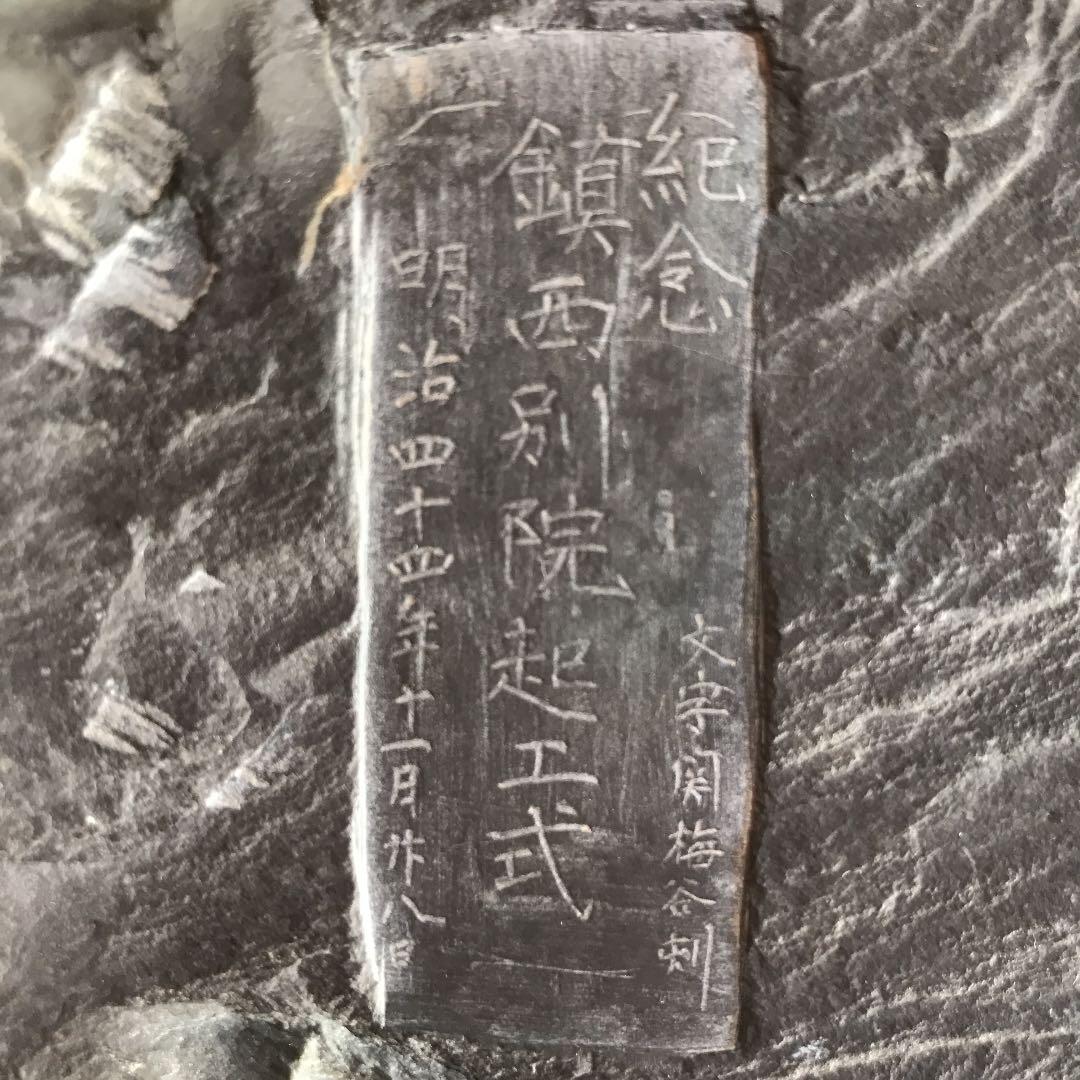 紀念
文字関梅谷刻
鎮西別院起工式
明治四十四年十一月廿八日